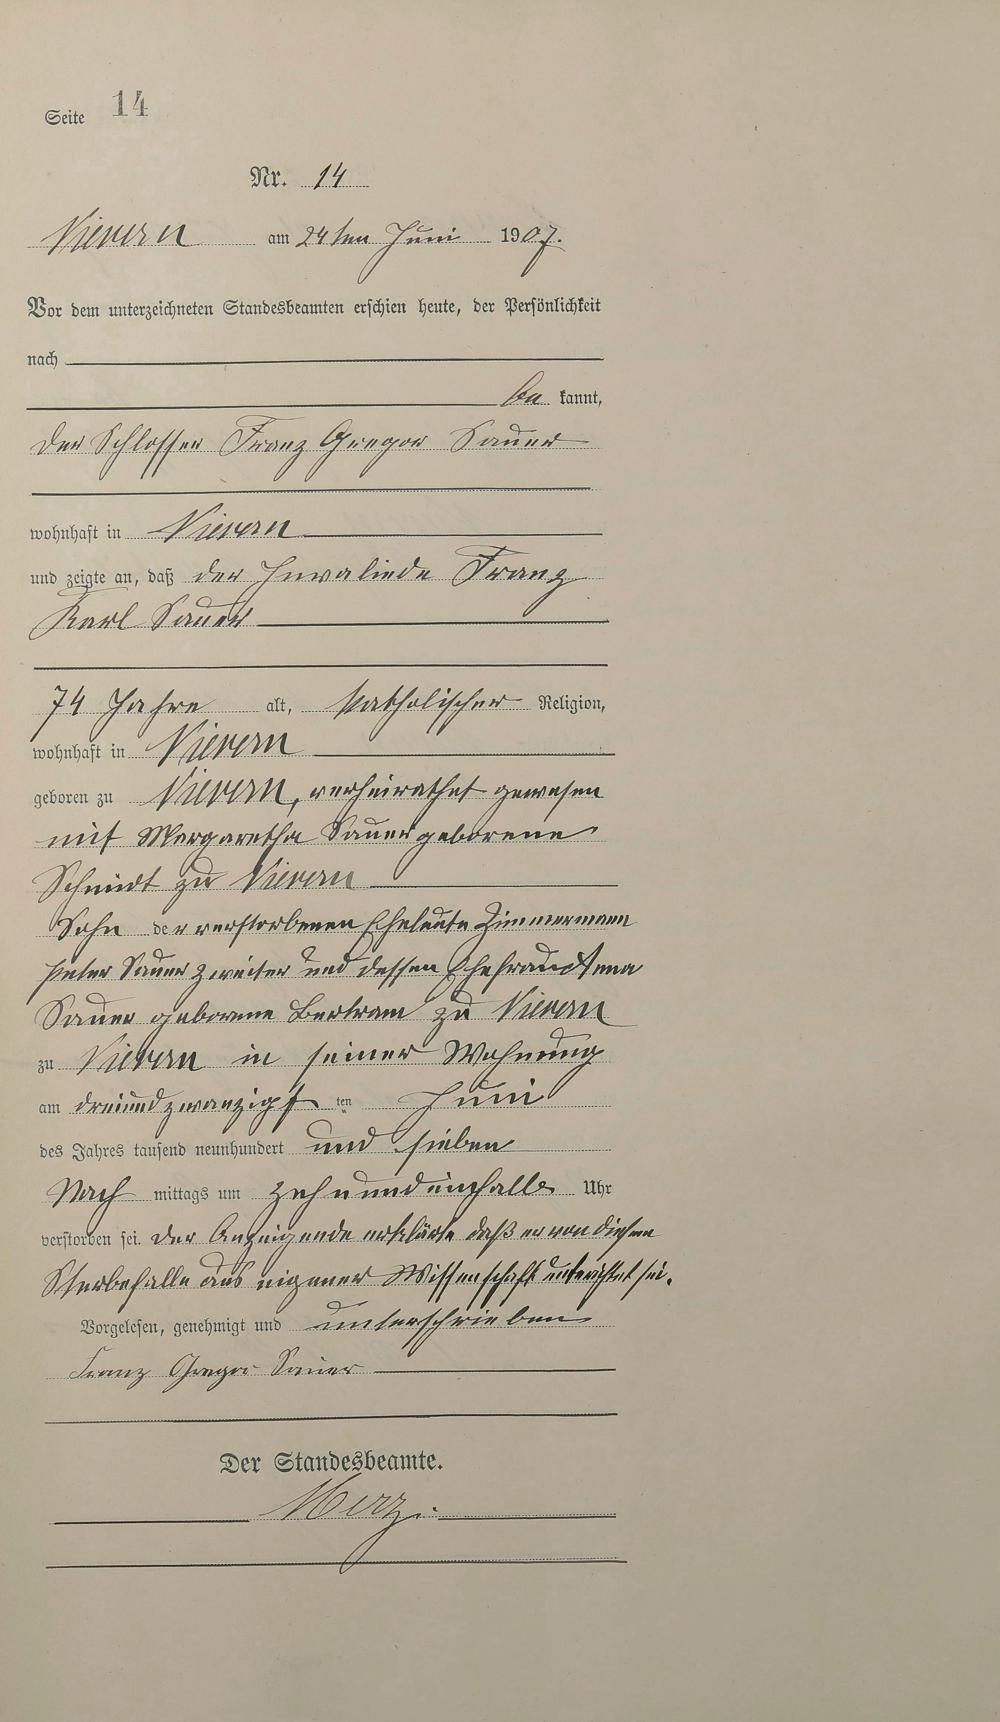 Seite 14
Nr. 14
Nievern am 24ten Juni 1907.
Vor dem unterzeichneten Standesbeamten erschien heute, der Persönlichkeit
nach
be kannt,
der Schlosser Franz Gregor Sauer
wohnhaft in Nievern
und zeigte an, daß der Invaliede Franz
Karl Sauer
74 Jahre alt, katholischer Religion,
wohnhaft in Nievern
geboren zu Nievern, verheirathet gewesen
mit Margaretha Sauer geborene
Schmidt zu Nievern
Sohn der verstorbenen Eheleute Zimmermann
Peter Sauer zweiter und dessen Ehefrau Anna
Sauer geborene Bertram zu Nievern
zu Nievern in seiner Wohnung
am dreiundzwanzigst ten Juni
des Jahres tausend neunhundert und sieben
Nach mittags um zehnundeinhalb Uhr
verstorben sei. Der Anzeigende erklärte daß er von diesem
Sterbefalle aus eigener Wissenschaft unterichtet sei.
Vorgelesen, genehmigt und unterschrieben
Franz Gregor Sauer
Der Standesbeamte.
Merz.